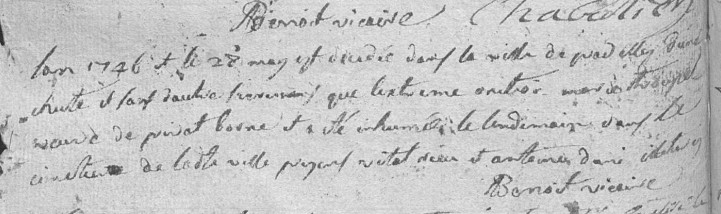 Benoit vicaire Chabalier
Lan 1746 et le 28 may est decedée dans la ville de pradelles d'une
chute et sans dautre sacremens que lextreme onction marie
veuve de privat borne et a été inhumée le lendemain dans le
cimetiere de ladte ville presens vital et antoine illiterés
Benoit vicaire